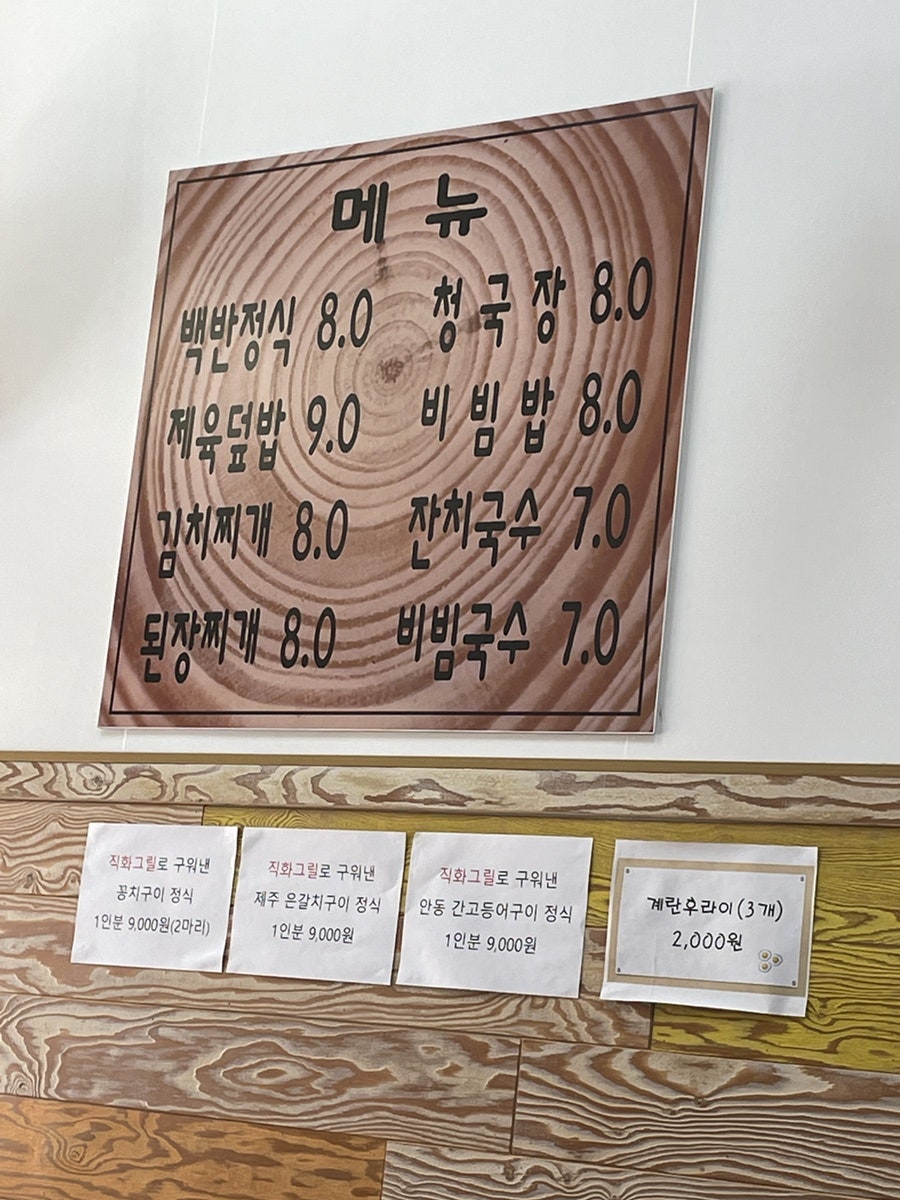 메 뉴
백반정식 8.0 청국장 8.0
제육덮밥 9.0 비빔밥 8.0
김치찌개 8.0 잔치국수 7.0
된장찌개 8.0 비빔국수 7.0
직화그릴로 구워낸
꽁치구이 정식
1인분 9,000원(2마리)
직화그릴로 구워낸
제주 은갈치구이 정식
1인분 9,000원
직화그릴로 구워낸
안동 간고등어구이 정식
1인분 9,000원
계란후라이(3개)
2,000원